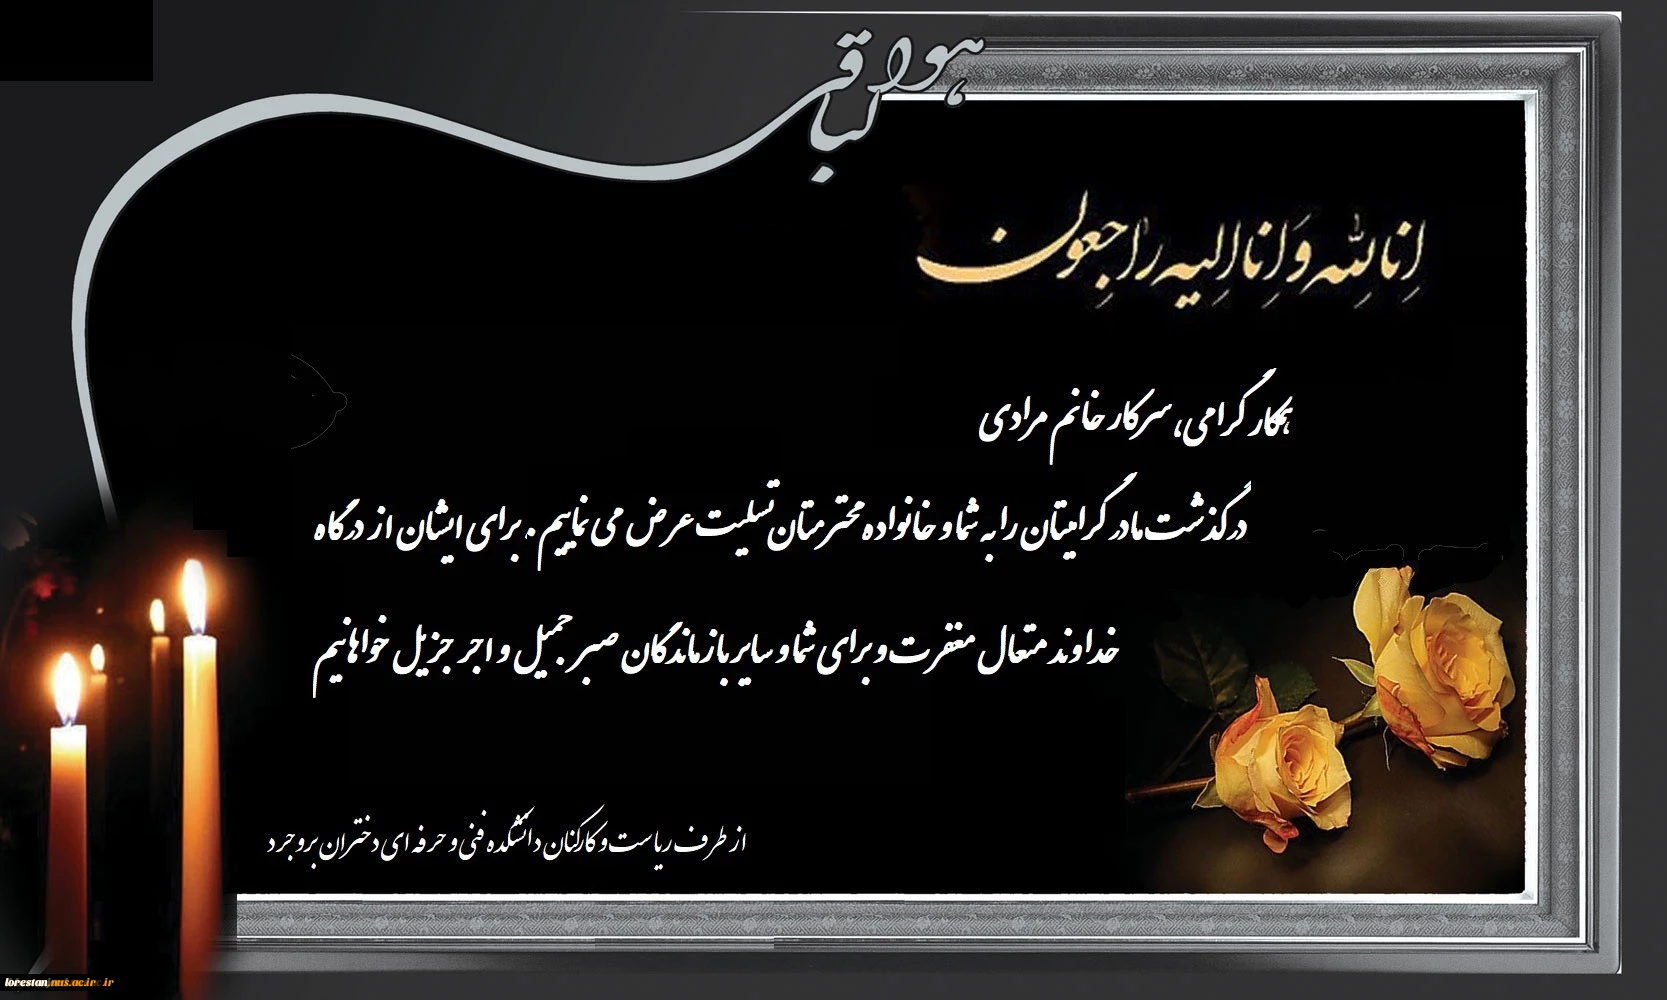 هوالباقی
اِنا لِلّه وَ اِنا اِلیه راجِعون
همکار گرامی، سرکار خانم مرادی
درگذشت مادر گرامیتان را به شما و خانواده محترمتان تسلیت عرض می نماییم. برای ایشان از درگاه
خداوند متعال مغفرت و برای شما و سایر بازماندگان صبر جمیل و اجر جزیل خواهانیم
از طرف ریاست و کارکنان دانشکده فنی و حرفه ای دختران بروجرد